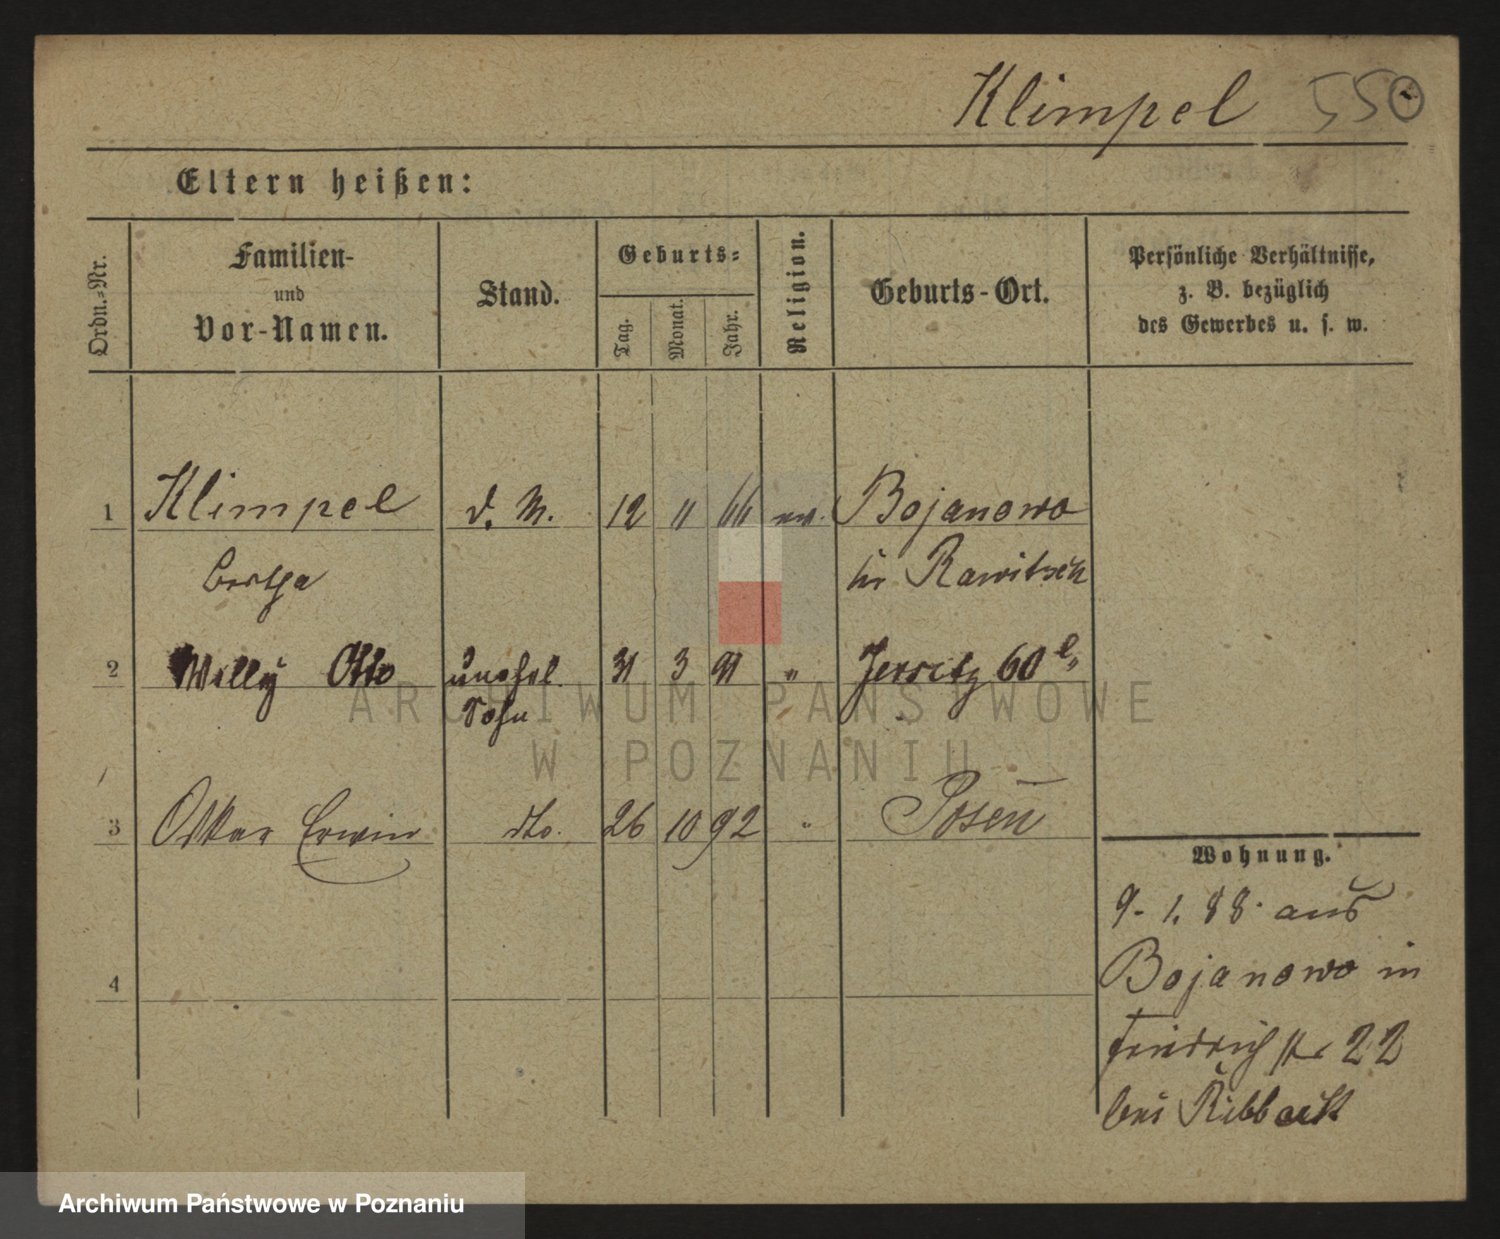 Klimpel 55
Eltern heißen:
Ordn.-Nr.
Familien-
und
Vor-Namen.
Stand.
Geburts-
Tag.
Monat.
Jahr.
Religion.
Geburts-Ort.
Persönliche Verhältnisse,
z. B. bezüglich
des Gewerbes u. s. w.
1 Klimpel d. M. 12 11 66 ev. Bojanowo
Bertha Kr Rawitsch
2 Willy Otto unehel. 31 3 91 " Jersitz 60
Sohn
3 Oskar Erwin dto. 26 10 92 " Posen
4
Wohnung.
9. 1. 88. aus
Bojanowo in
Friedrichstr 22
bei
ARCHIWUM PAŃSTWOWE
W POZNANIU
Archiwum Państwowe w Poznaniu